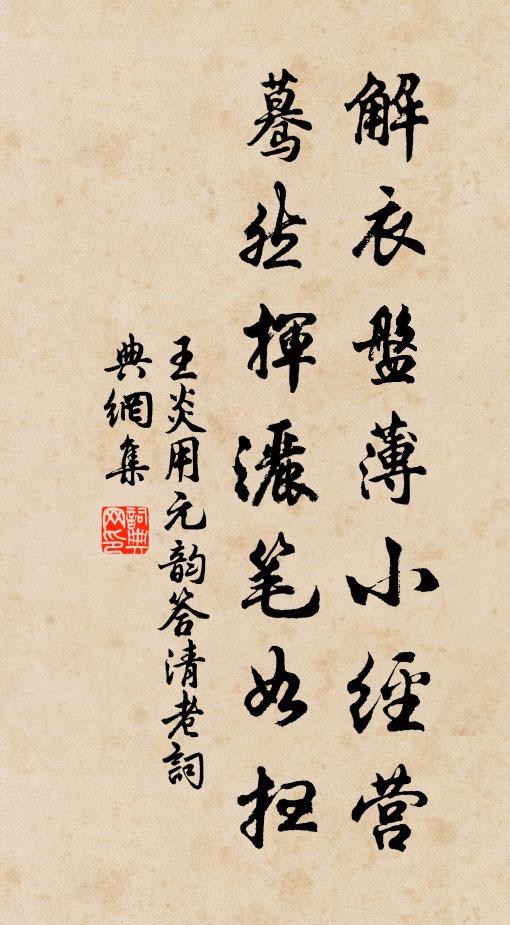 解衣盤薄小經营
驀然揮灑笔如扫
王炎用元韵答清老詞
典網集
詞典網印